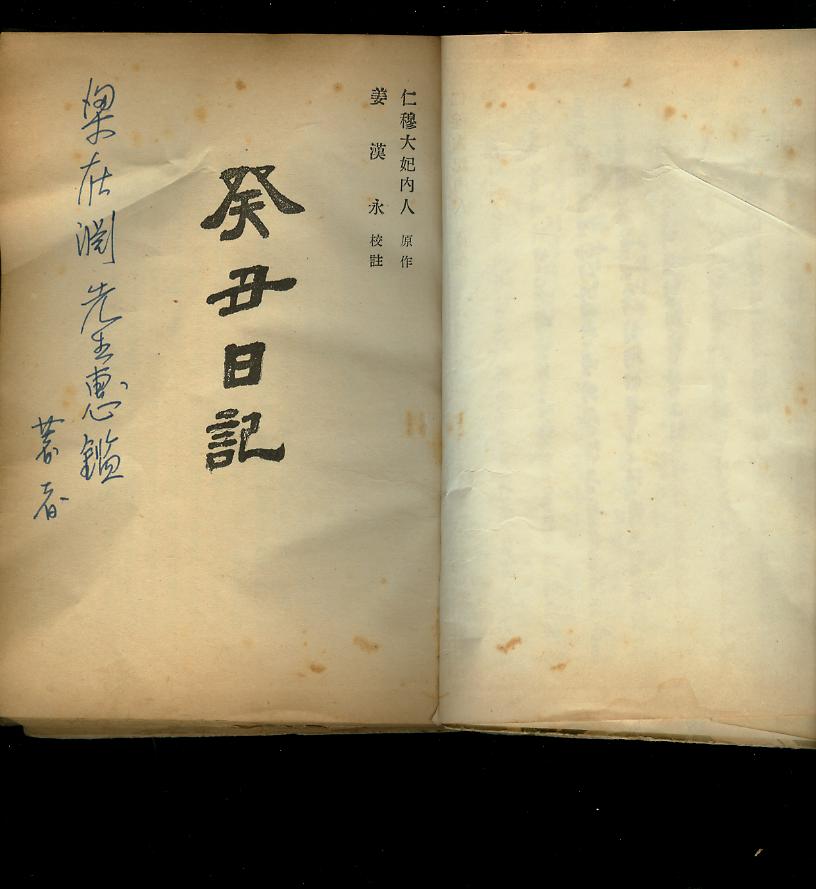 仁穆大妃內人 原作
姜漢永 校註
癸丑日記
梁在淵 先生 惠鑑
著者